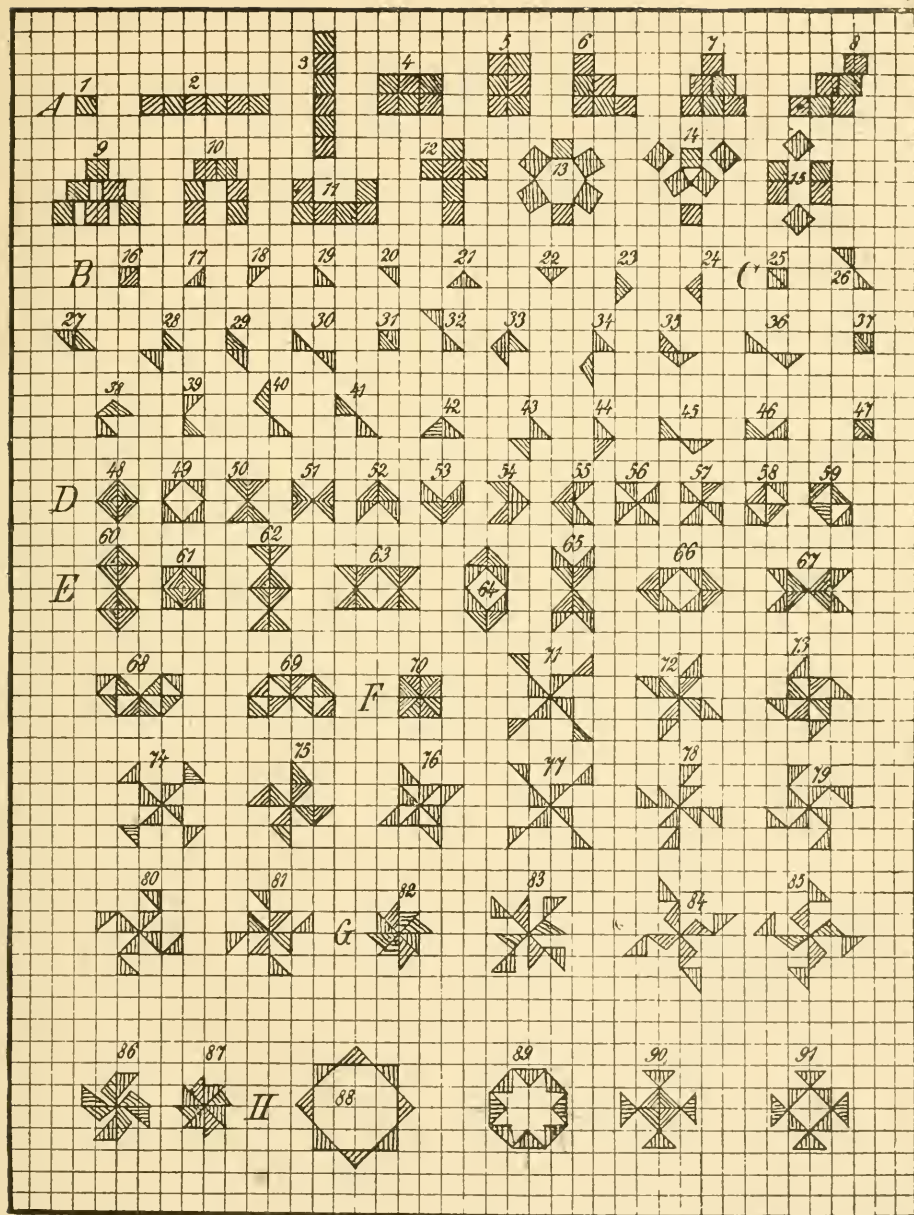 A 1 2 3 4 5 6 7 8
9 10 11 12 13 14 15
B 16 17 18 19 20 21 22 23 24 C 25 26
27 28 29 30 31 32 33 34 35 36 37
38 39 40 41 42 43 44 45 46 47
D 48 49 50 51 52 53 54 55 56 57 58 59
E 60 61 62 63 64 65 66 67
68 69 F 70 71 72 73
74 75 76 77 78 79
80 81 G 82 83 84 85
86 87 H 88 89 90 91